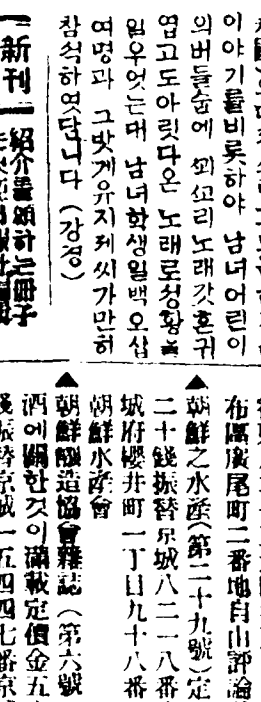 이야기를비롯하야 남녀어린이
의버들숩에 꾀꼬리노래갓흔귀
엽고도아릿다온 노래로성황을
일우엇는대 남녀학생일백오십
여명과 그밧게유지제씨가만히
참석하엿답니다 (강경)
新刊
紹介를願하는冊子
布區廣尾町二番地自由評論
▲朝鮮之水產(第二十九號)定
二十錢振替京城八二一八番
城府櫻井町一丁目九十八番
朝鮮水產會
▲朝鮮釀造協會雜誌(第六號
酒에關한것이滿載定價金五
錢振替京城一五四四七番京